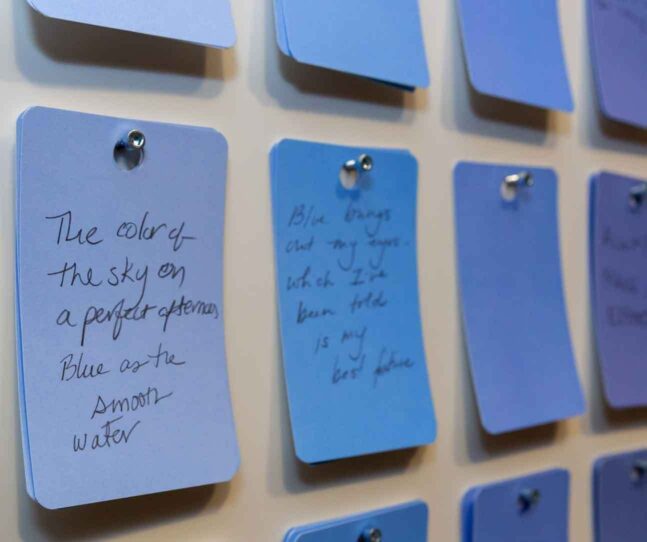 The color of
the sky on
a perfect afternoon
Blue as the
smooth
water
Blue brings
out my eyes -
which I've
been told
is my
best feature